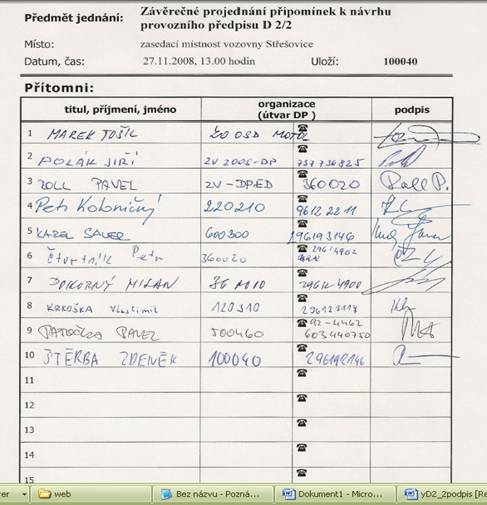 Předmět jednání: Závěrečné projednání připomínek k návrhu
provozního předpisu D 2/2
Místo: zasedací místnost vozovny Střešovice
Datum, čas: 27.11.2008, 13.00 hodin Uloží: 100040
Přítomni:
titul, příjmení, jméno organizace (útvar DP) ☎ podpis
1 MAREK TOŠIL ZO OSD MOTOL ☎
2 POLÁK JIŘÍ ZV 2006-DP ☎ 737730825
3 ZOLL PAVEL ZV-DPED ☎ 360020 Zoll P.
4 Petr Koloničný 220210 ☎ 96122211
5 KAREL SAUER 600300 ☎ 296193146
6 Čtvrtník Petr 360020 ☎ 29614902
7 POKORNÝ MILAN ☎ 29614900
8 KRKOŠKA Vlastimil 120310 ☎
9 PATOČKA PAVEL 500460 ☎ 92-4462 603440750
10 ŠTĚRBA ZDENĚK 100040 ☎ 296192146
11 ☎
12 ☎
13 ☎
14 ☎
15 ☎
web Bez názvu - Pozná... Dokument1 - Micro... yD2_2podpis [Re